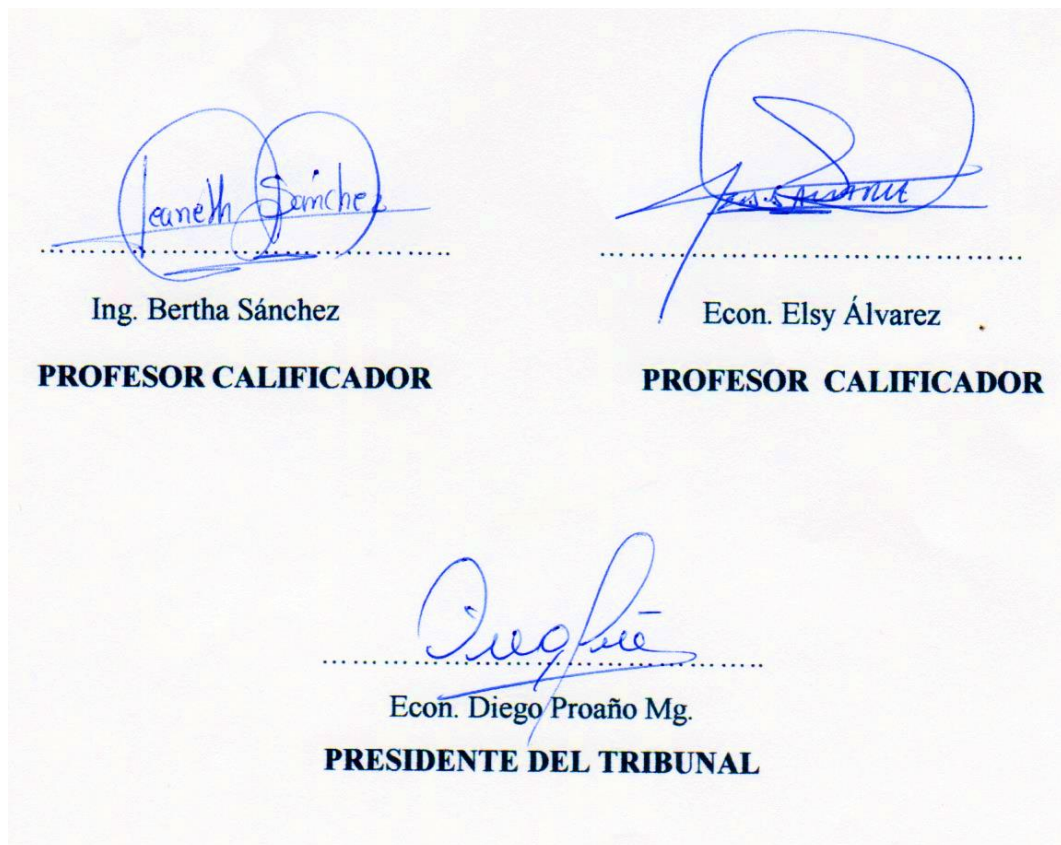 Jeaneth Sánchez
Ing. Bertha Sánchez
PROFESOR CALIFICADOR
Econ. Elsy Álvarez
PROFESOR CALIFICADOR
Econ. Diego Proaño Mg.
PRESIDENTE DEL TRIBUNAL